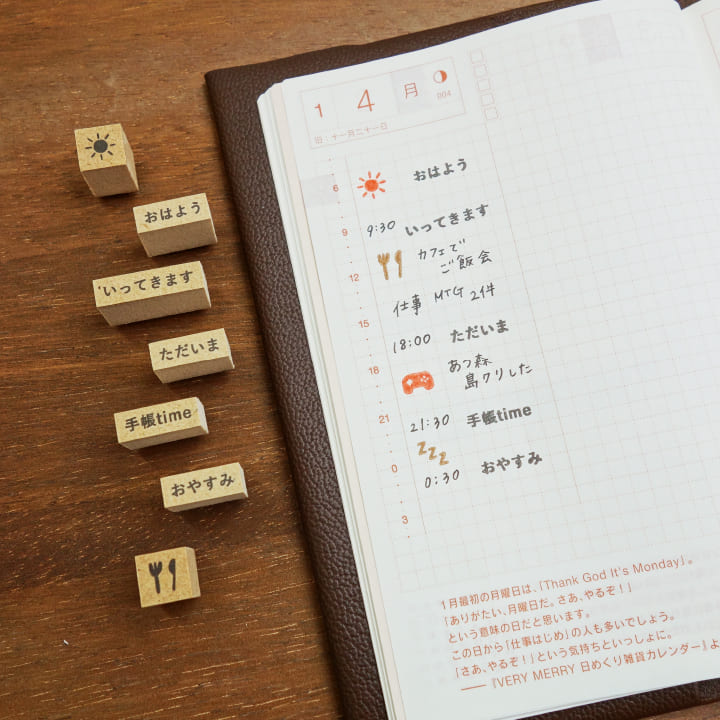 おはよう
いってきます
ただいま
手帳time
おやすみ
1 4 月
004
旧:十一月二十一日
6
おはよう
9
9:30 いってきます
12
カフェで
ご飯会
仕事 MTG 2件
15
18:00 ただいま
18
あつ森
島クリした
21
21:30 手帳time
zzz
0
0:30 おやすみ
3
1月最初の月曜日は、「Thank God It's Monday」。
「ありがたい、月曜日だ。さあ、やるぞ!」
という意味の日だと思います。
この日から「仕事はじめ」の人も多いでしょう。
「さあ、やるぞ!」という気持ちといっしょに。
──『VERY MERRY 日めくり雑貨カレンダー』よ